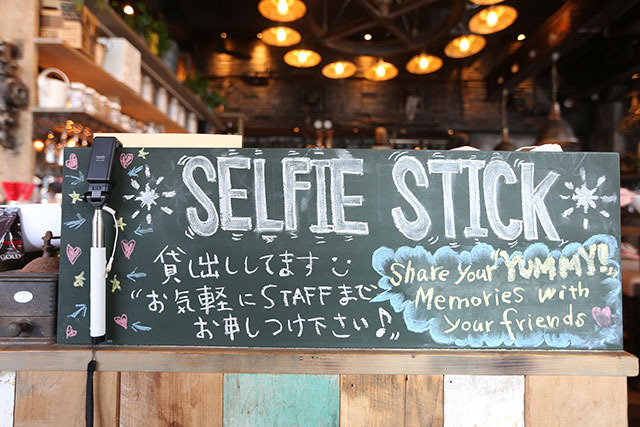 SELFIE STICK
貸し出ししてます
"お気軽にSTAFFまで
お申しつけ下さい♪"
Share Your "YUMMY!"
Memories with
your friends